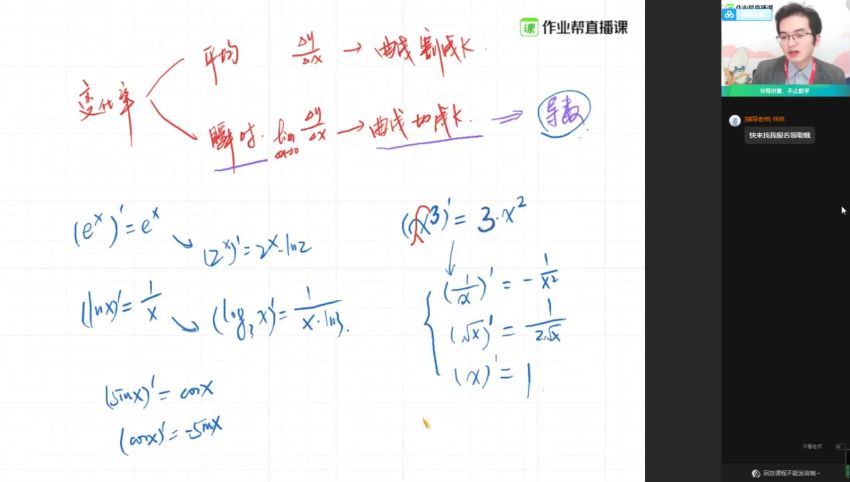 作业帮直播课
变化率
平均 Δy/Δx → 曲线割线k.
瞬时. lim Δx→0 Δy/Δx → 曲线切线k. ⇒ 导数
(e^x)' = e^x
(2^x)' = 2^x·ln2
(lnx)' = 1/x
(log₃x)' = 1/(x·ln3).
(sinx)' = cosx
(cosx)' = -sinx
(x³)' = 3·x²
(1/x)' = -1/x²
(√x)' = 1/(2√x)
(x)' = 1.
华哥讲堂,不止数学
[辅导老师] 咪咪
快来找我报名领取哦
只看老师
回放课程不能发言哦~